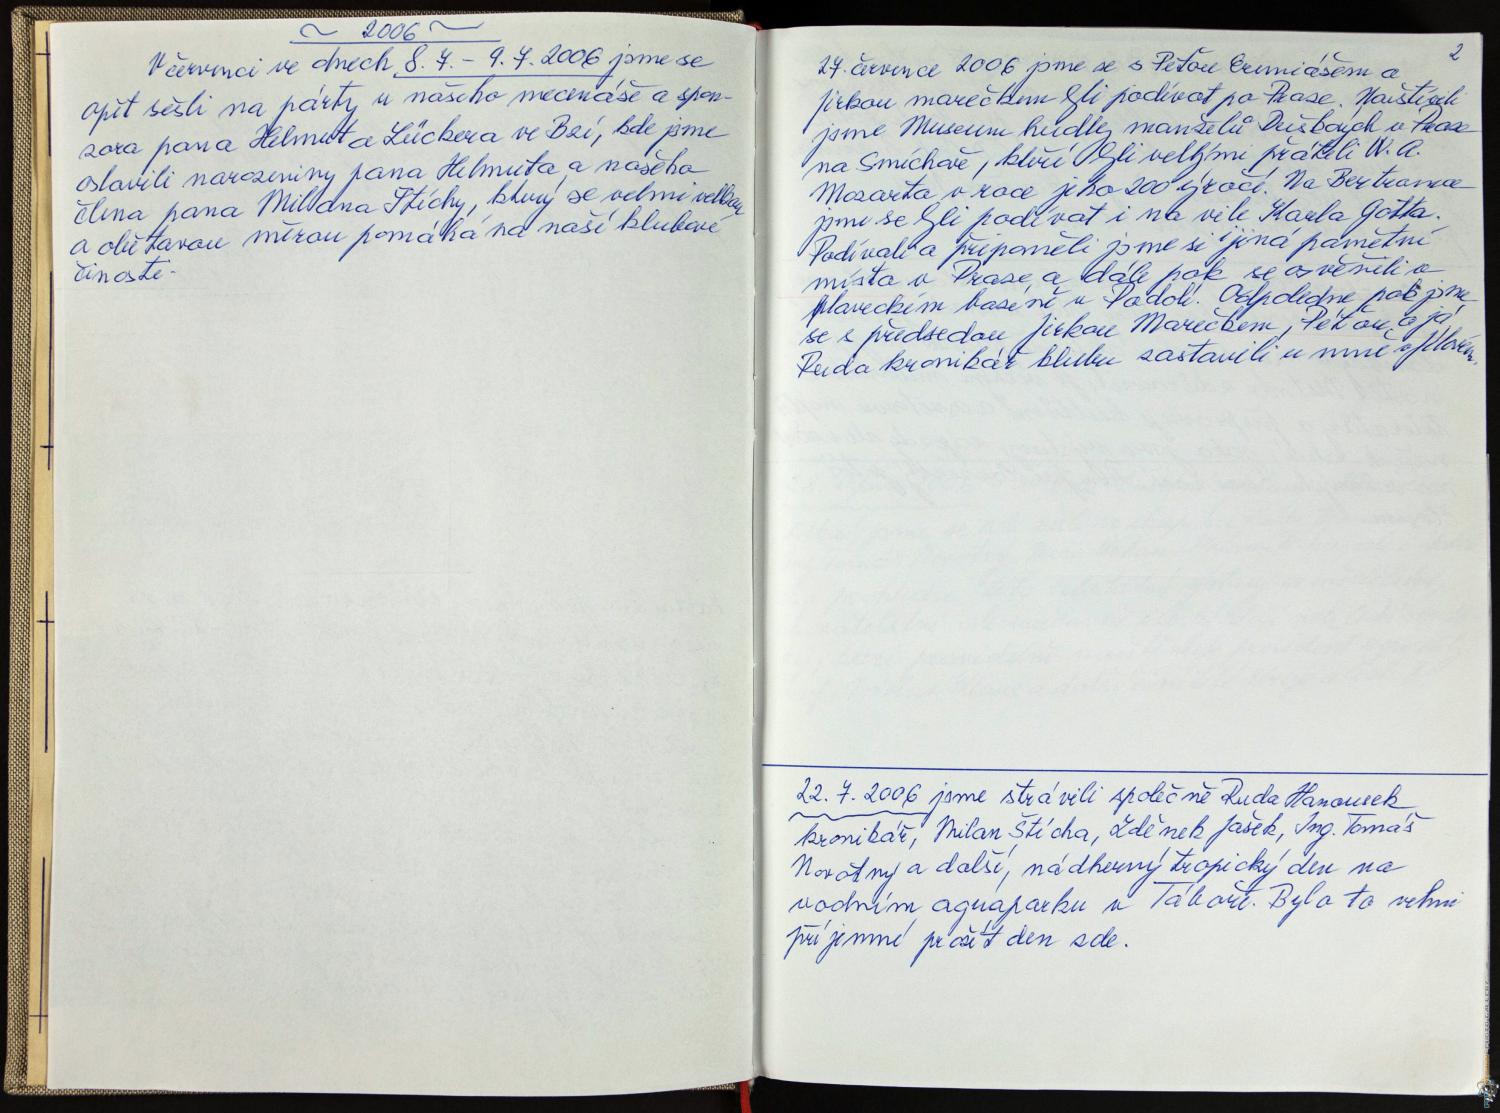 ~ 2006 ~
V červenci ve dnech 8. 7. - 9. 7. 2006 jsme se
opět sešli na párty u našeho mecenáše a spon-
zora pana Helmuta Lückera ve Bzí, kde jsme
oslavili narozeniny pana Helmuta a našeho
člena pana Milana Štíchy, který se velmi velkou
a obětavou měrou pomáhá na naší klubové
činosti.
2
27. července 2006 jsme se s Péťou Eremiášem a
Jirkou marečkem byli podívat po Praze. Navštívili
jsme Museum hudby manželů Duškových v Praze
na Smíchově, kteří byli velkými přáteli W. A.
Mozarta v roce jeho 200 výročí. Na Bertramce
jsme se byli podívat i na vile Karla Gotta.
Podívali a připoměli jsme si i jiná pamětní
místa v Praze a dále pak se osvěžili v
plaveckém bazéně v Podolí. Odpoledne pak jsme
se s předsedou Jirkou Marečkem, Péťou a já
Ruda kronikář klubu zastavili u mně v Jílovém.
22. 7. 2006 jsme strávili společně Ruda Hanousek
kronikář, Milan Štícha, Zděnek Jašek, Ing. Tomáš
Novotný a další, nádherný tropický den na
vodním aquaparku v Táboře. Bylo to velmi
příjemné prožít den zde.